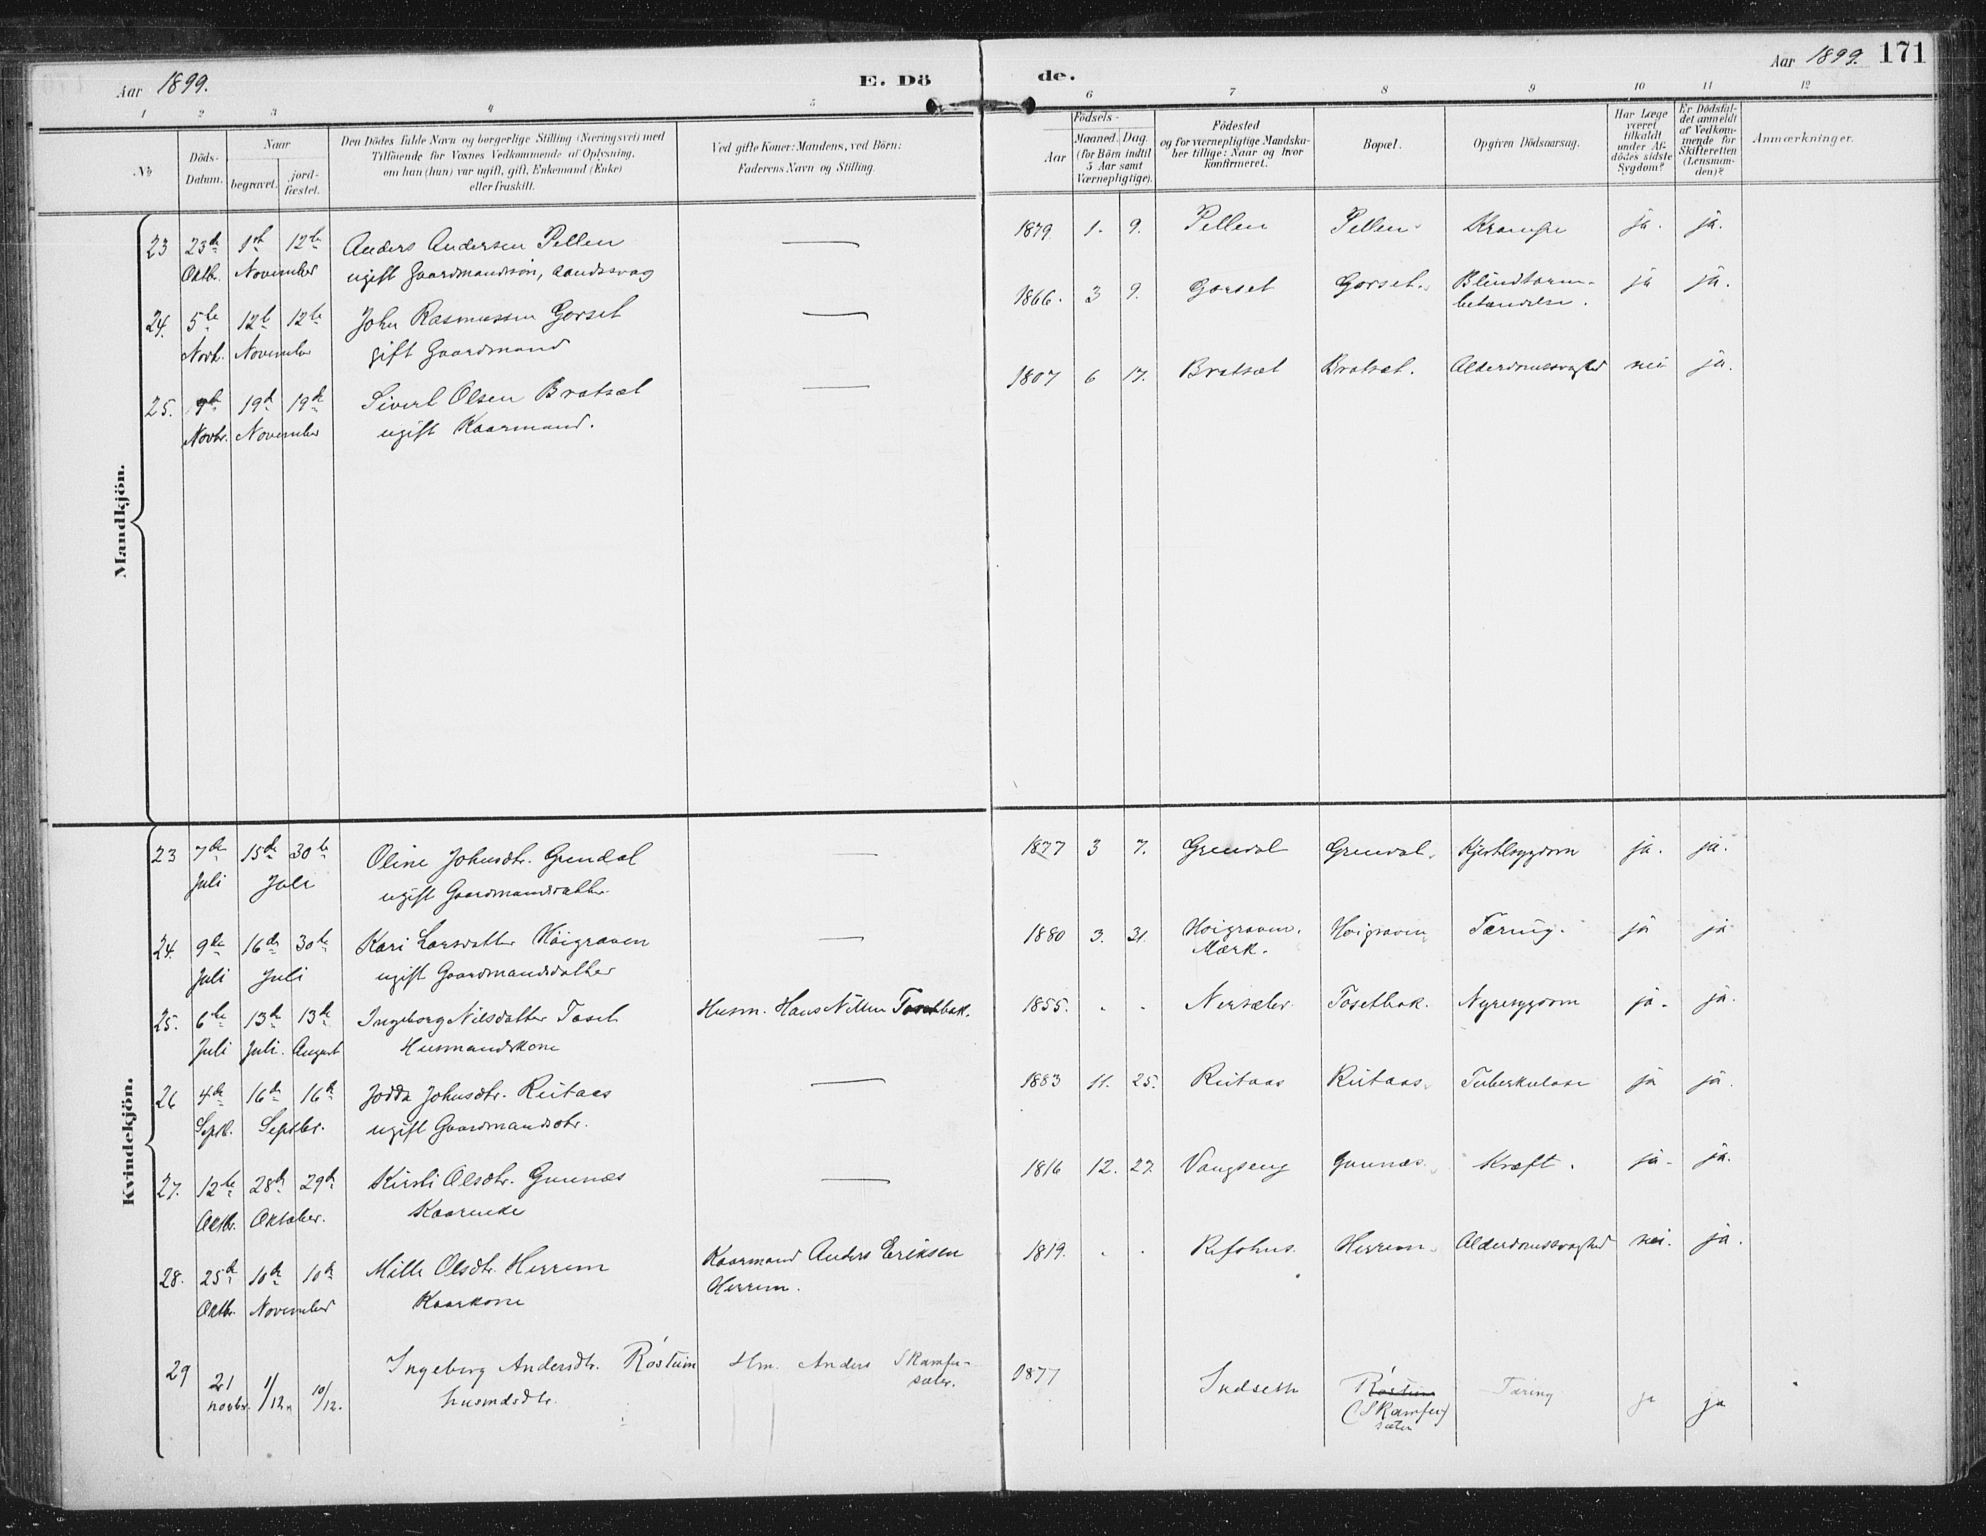 Aar 1899.
E. Dö
de.
Aar 1899. 171
1 2 3 4 5 6 7 8 9 10 11 12
No
Döds-
Datum.
Naar
begravet.
jord-
fæstet.
Den Dödes fulde Navn og borgerlige Stilling (Næringsvei) med
Tilföiende for Voxnes Vedkommende af Oplysning,
om han (hun) var ugift, gift, Enkemand (Enke)
eller fraskilt.
Ved gifte Koner: Mandens, ved Börn:
Faderens Navn og Stilling.
Födsels-
Aar
Maaned.
Dag.
(for Börn indtil
5 Aar samt
Værnepligtige).
Födested
og for værnepligtige Mandska-
ber tillige: Naar og hvor
konfirmeret.
Bopæl.
Opgiven Dödsaarsag.
Har Læge
været
tilkaldt
under Af-
dödes sidste
Sygdom?
Er Dödsfal-
det anmeldt
af Vedkom-
mende for
Skifteretten
(Lensman-
den)?
Anmærkninger.
Mandkjön.
23 23de 1ste 12te Anders Andersen Pellen — 1879 1. 9. Pellen Pellen Krampe ja. ja.
Oktb. November ugift Gaardmandssön, aandssvag
24. 5te 12te 12te John Rasmussen Gorset — 1866. 3 9. Gorset Gorset. Blindtarm-
betændelse. ja ja.
Novb. November gift Gaardmand
25. 19de 19de Sivert Olsen Bratset — 1807 6 17. Bratset Bratset. Alderdomssvaghed nei ja.
Novbr. November ugift Kaarmand.
Kvindekjön.
23 7de 15de 30te Oline Johnsdtr. Grendal — 1877 3 7. Grendal Grendal. Kjertelsygdom ja. ja.
Juli Juli ugift Gaardmandsdatter
24. 9de 16de 30te Kari Larsdatter Höigraven — 1880 3. 31. Höigraven,
Mærk. Höigraven Tæring. ja ja
Juli Juli ugift Gaardmandsdatter
25. 6te 13de 13de Ingeborg Nilsdatter Toset Husm. Hans Nilsen Tosetbak. 1855. - - Nersæter Tosetbak. Nyresygdom ja. ja.
Juli Juli. August Husmandskone
26 4de 16de 16de Jodda Johnsdtr. Ristaas — 1883 11. 25. Ristaas Ristaas. Tuberkulose ja ja.
Septb. Septbr. ugift Gaardmandsdtr.
27. 12te 28de 29de Kirsti Olsdtr. Gunnes — 1816 12. 27. Vangseng Gunnes. Kræft. ja. ja.
Oktbr. Oktober. Kaarenke
28. 25de 10de 10de Mille Olsdtr. Herrem Kaarmand Anders Eriksen
Herrem. 1819. - - Refshus. Herrem. Alderdomssvaghed nei. ja.
Oktbr. November Kaarkone
29 21 1/12. 10/12. Ingeborg Andersdtr. Röstum Hm. Anders Skamfer-
sæter. 1877 Indseth Röstum
(Skamfer)
sæter Tæring ja ja
novbr. husmdsdtr.